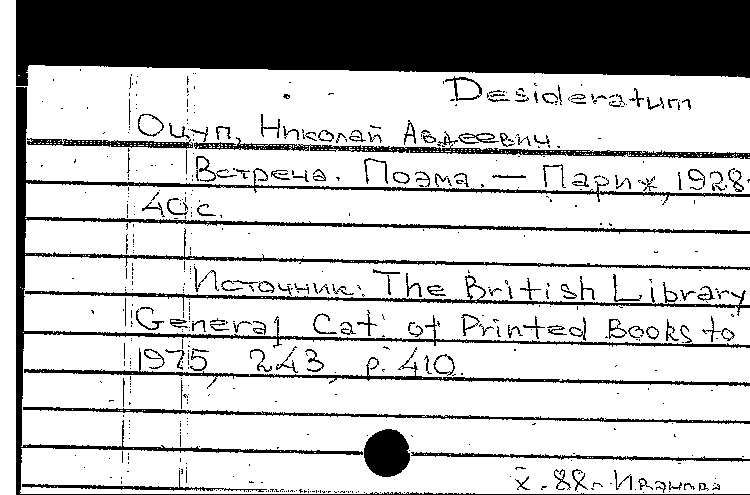 Desideratum
Оцуп, Николай Авдеевич.
Встреча. Поэма. — Париж, 1928.
40 с.
Источник: The British Library
General Cat. of Printed Books to
1975, 243, p. 410.
X.88г. Иванова